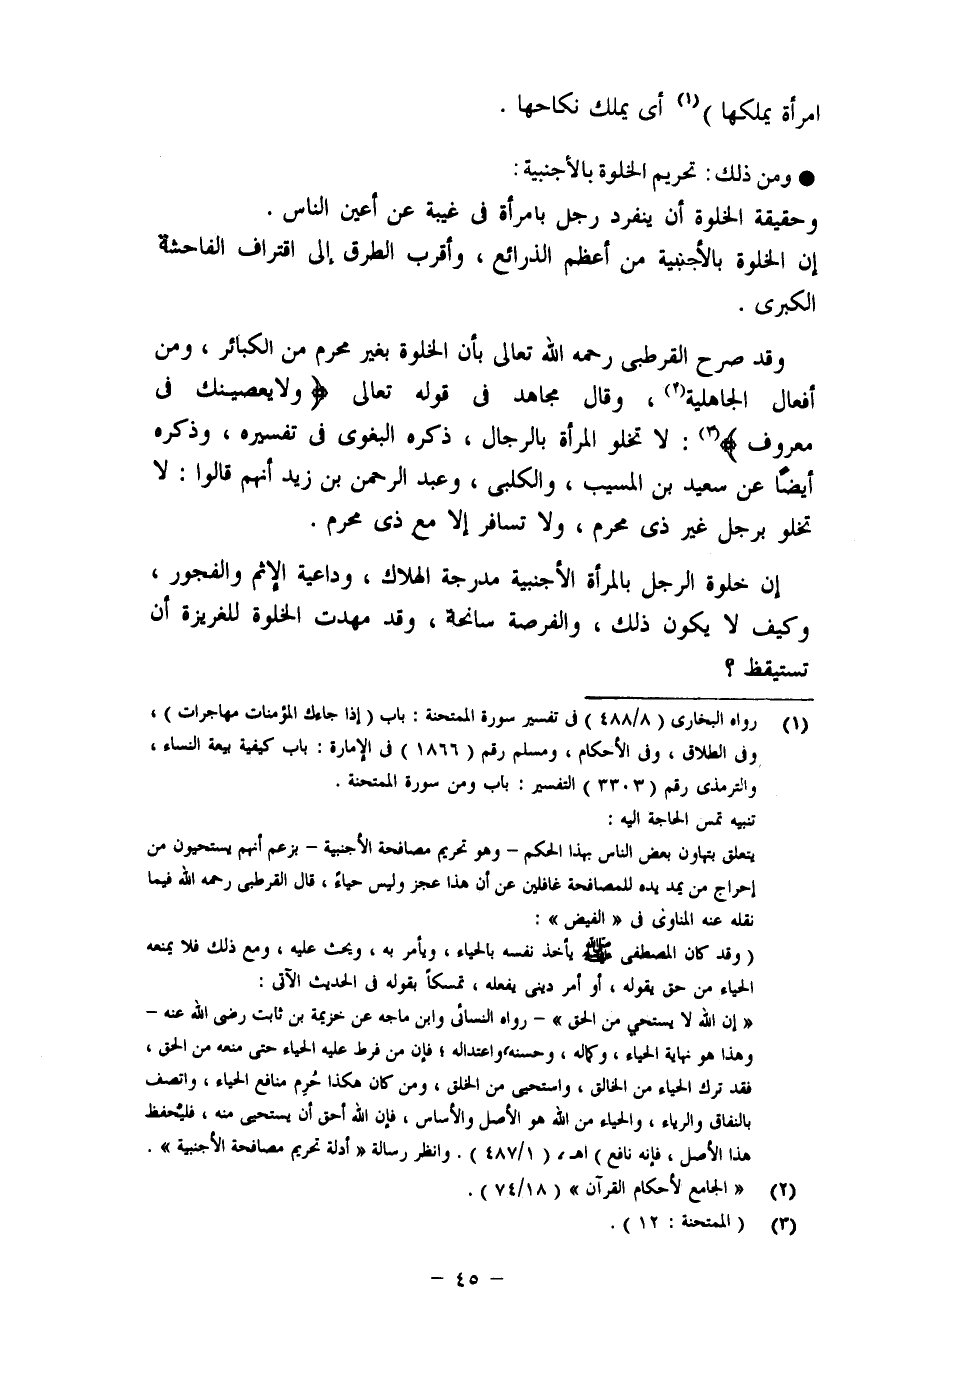 امرأة يملكها )(١) أى يملك نكاحها .
● ومن ذلك : تحريم الخلوة بالأجنبية :
وحقيقة الخلوة أن ينفرد رجل بامرأة فى غيبة عن أعين الناس .
إن الخلوة بالأجنبية من أعظم الذرائع ، وأقرب الطرق إلى اقتراف الفاحشة
الكبرى .
وقد صرح القرطبى رحمه الله تعالى بأن الخلوة بغير محرم من الكبائر ، ومن
أفعال الجاهلية(٢) ، وقال مجاهد فى قوله تعالى ﴿ ولايعصينك فى
معروف ﴾(٣) : لا تخلو المرأة بالرجال ، ذكره البغوى فى تفسيره ، وذكره
أيضًا عن سعيد بن المسيب ، والكلبى ، وعبد الرحمن بن زيد أنهم قالوا : لا
تخلو برجل غير ذى محرم ، ولا تسافر إلا مع ذى محرم .
إن خلوة الرجل بالمرأة الأجنبية مدرجة الهلاك ، وداعية الإثم والفجور ،
وكيف لا يكون ذلك ، والفرصة سانحة ، وقد مهدت الخلوة للغريزة أن
تستيقظ ؟
(١) رواه البخارى ( ٤٨٨/٨ ) فى تفسير سورة الممتحنة : باب ( إذا جاءك المؤمنات مهاجرات ) ،
وفى الطلاق ، وفى الأحكام ، ومسلم رقم ( ١٨٦٦ ) فى الإمارة : باب كيفية بيعة النساء ،
والترمذى رقم ( ٣٣٠٣ ) التفسير : باب ومن سورة الممتحنة .
تنبيه تمس الحاجة اليه :
يتعلق بتهاون بعض الناس بهذا الحكم – وهو تحريم مصافحة الأجنبية – بزعم أنهم يستحيون من
إحراج من يمد يده للمصافحة غافلين عن أن هذا عجز وليس حياءً ، قال القرطبى رحمه الله فيما
نقله عنه المناوى فى « الفيض » :
( وقد كان المصطفى ﷺ يأخذ نفسه بالحياء ، ويأمر به ، ويحث عليه ، ومع ذلك فلا يمنعه
الحياء من حق يقوله ، أو أمر دينى يفعله ، تمسكاً بقوله فى الحديث الآتى :
« إن الله لا يستحي من الحق » – رواه النسائى وابن ماجه عن خزيمة بن ثابت رضى الله عنه –
وهذا هو نهاية الحياء ، وكماله ، وحسنه، واعتداله ؛ فإن من فرط عليه الحياء حتى منعه من الحق ،
فقد ترك الحياء من الخالق ، واستحيى من الخلق ، ومن كان هكذا حُرِم منافع الحياء ، واتصف
بالنفاق والرياء ، والحياء من الله هو الأصل والأساس ، فإن الله أحق أن يستحيى منه ، فليُحفظ
هذا الأصل ، فإنه نافع ) اهـ ، ( ٤٨٧/١ ) . وانظر رسالة « أدلة تحريم مصافحة الأجنبية » .
(٢) « الجامع لأحكام القرآن » ( ٧٤/١٨ ) .
(٣) ( الممتحنة : ١٢ ) .
– ٤٥ –